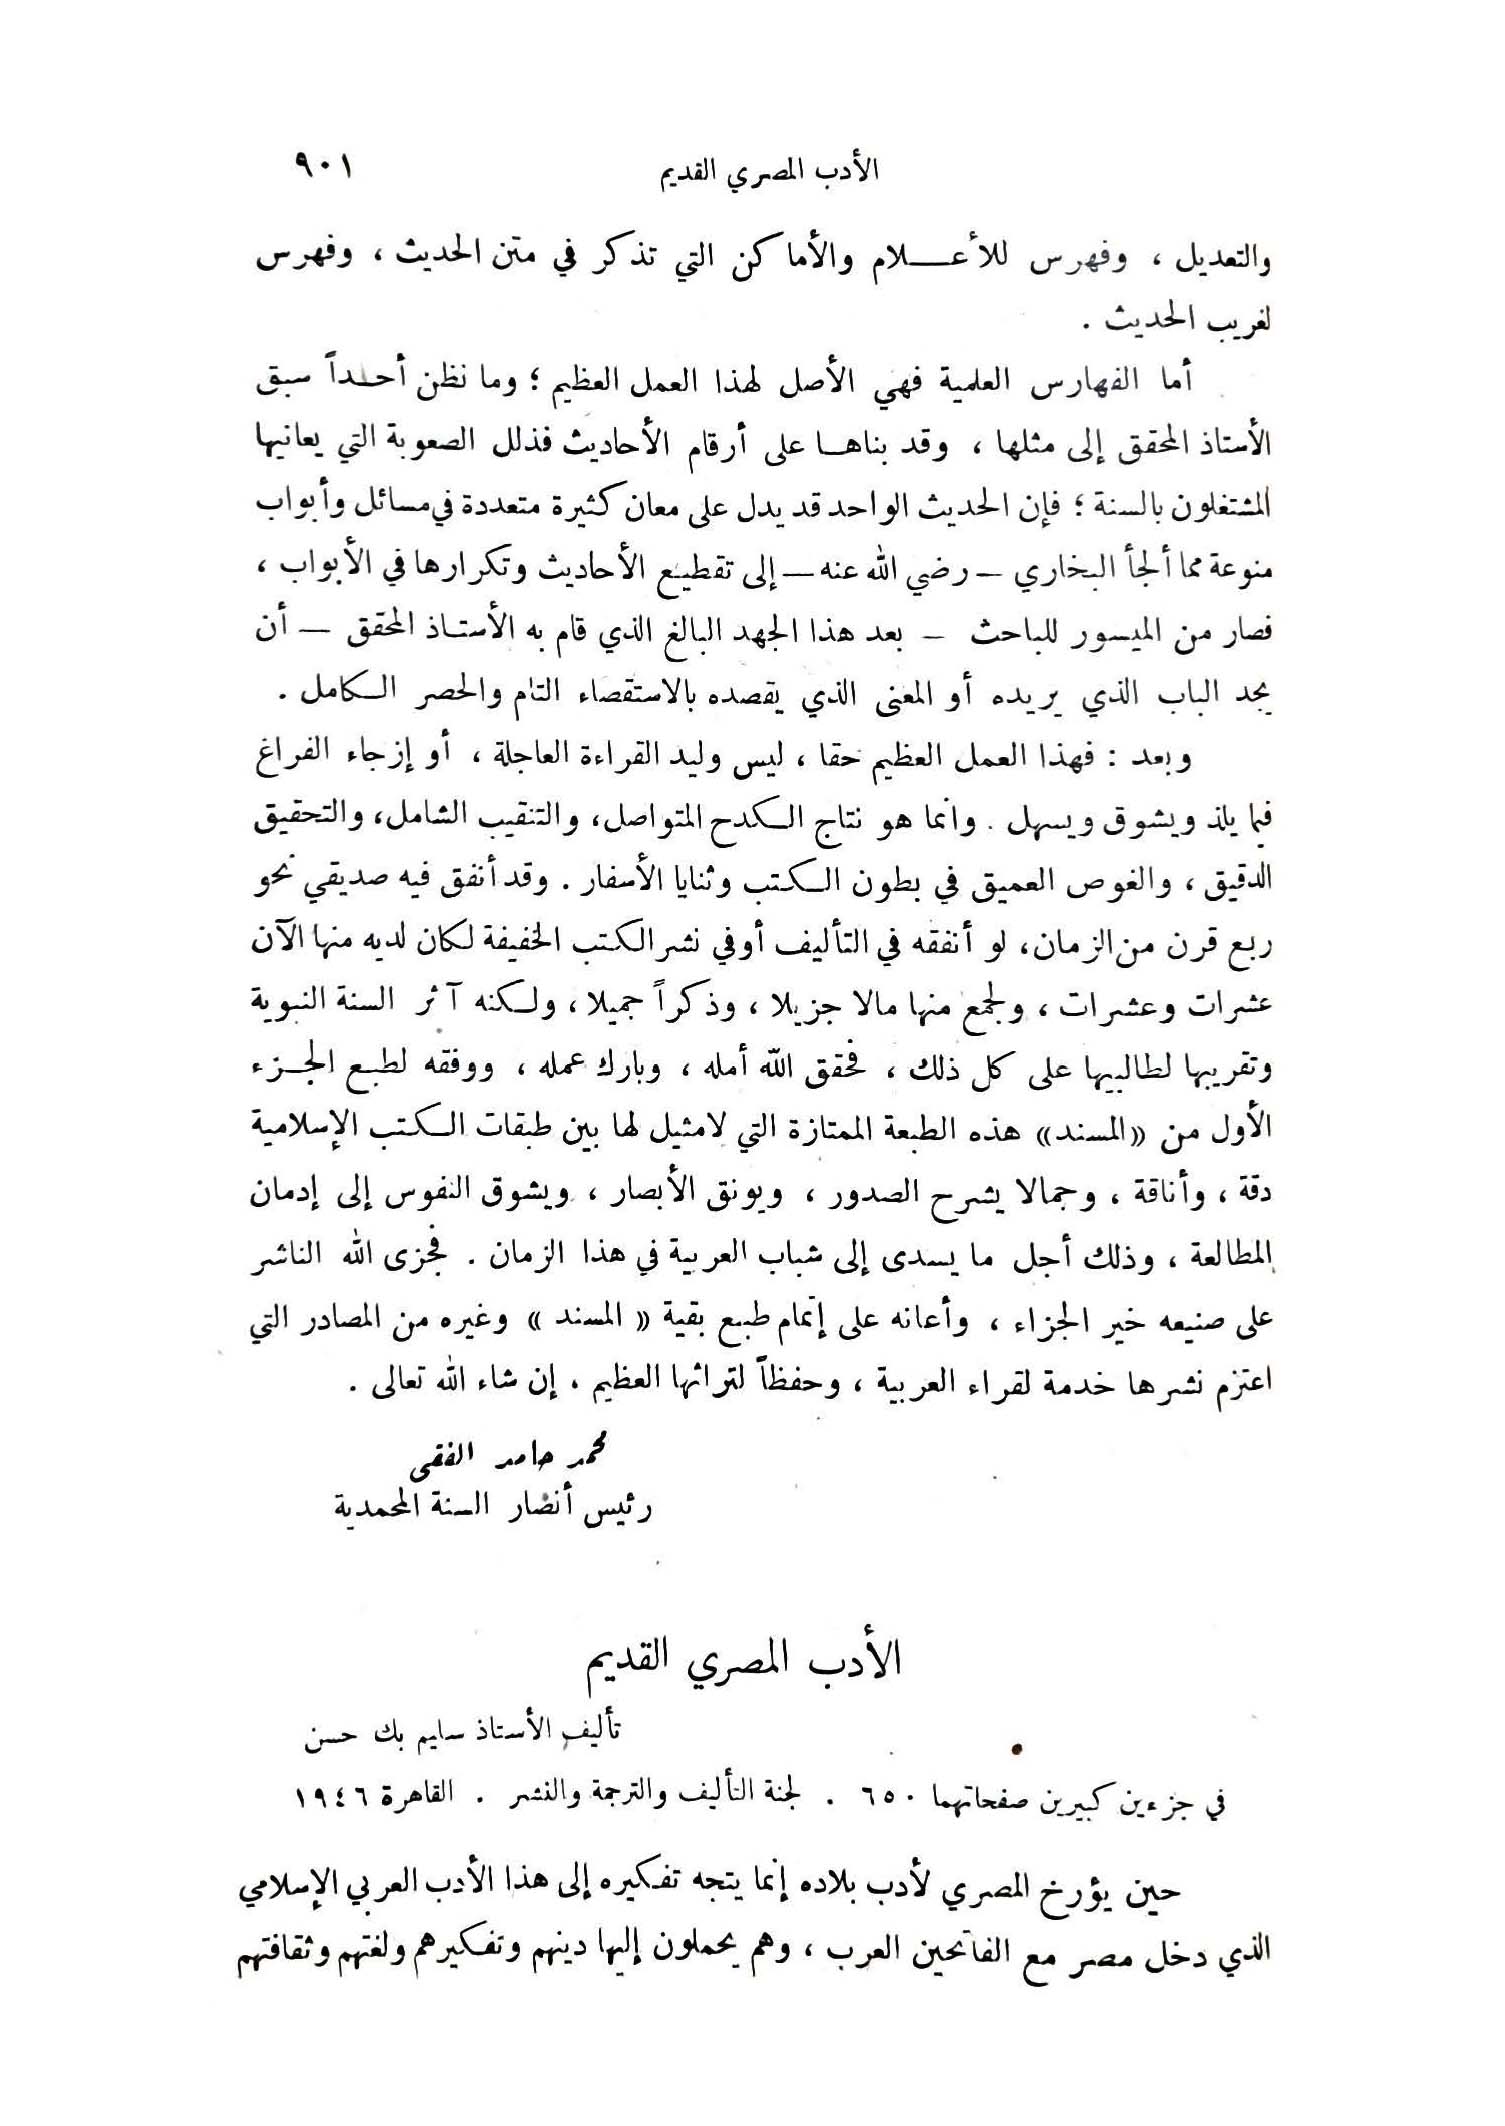 الأدب المصري القديم ٩٠١
والتعديل ، وفهرس للأعلام والأماكن التي تذكر في متن الحديث ، وفهرس
لغريب الحديث .
أما الفهارس العلمية فهي الأصل لهذا العمل العظيم ؛ وما نظن أحداً سبق
الأستاذ المحقق إلى مثلها ، وقد بناها على أرقام الأحاديث فذلل الصعوبة التي يعانيها
المشتغلون بالسنة ؛ فإن الحديث الواحد قد يدل على معان كثيرة متعددة في مسائل وأبواب
منوعة مما ألجأ البخاري – رضي الله عنه – إلى تقطيع الأحاديث وتكرارها في الأبواب ،
فصار من الميسور للباحث – بعد هذا الجهد البالغ الذي قام به الأستاذ المحقق – أن
يجد الباب الذي يريده أو المعنى الذي يقصده بالاستقصاء التام والحصر الكامل .
وبعد : فهذا العمل العظيم حقا ، ليس وليد القراءة العاجلة ، أو إزجاء الفراغ
فيما يلذ ويشوق ويسهل . وانما هو نتاج الكدح المتواصل، والتنقيب الشامل، والتحقيق
الدقيق ، والغوص العميق في بطون الكتب وثنايا الأسفار . وقد أنفق فيه صديقي نحو
ربع قرن من الزمان، لو أنفقه في التأليف أو في نشر الكتب الخفيفة لكان لديه منها الآن
عشرات وعشرات ، ولجمع منها مالا جزيلا ، وذكراً جميلا ، ولكنه آثر السنة النبوية
وتقريبها لطالبيها على كل ذلك ، فحقق الله أمله ، وبارك عمله ، ووفقه لطبع الجزء
الأول من «المسند» هذه الطبعة الممتازة التي لا مثيل لها بين طبقات الكتب الإسلامية
دقة ، وأناقة ، وجمالا يشرح الصدور ، ويونق الأبصار ، ويشوق النفوس إلى إدمان
المطالعة ، وذلك أجل ما يسدى إلى شباب العربية في هذا الزمان . فجزى الله الناشر
على صنيعه خير الجزاء ، وأعانه على إتمام طبع بقية « المسند » وغيره من المصادر التي
اعتزم نشرها خدمة لقراء العربية ، وحفظاً لتراثها العظيم ، إن شاء الله تعالى .
محمد حامد الفقى
رئيس أنصار السنة المحمدية
الأدب المصري القديم
تأليف الأستاذ سليم بك حسن
في جزءين كبيرين صفحاتهما ٦٥٠ . لجنة التأليف والترجمة والنشر . القاهرة ١٩٤٦
حين يؤرخ المصري لأدب بلاده إنما يتجه تفكيره إلى هذا الأدب العربي الإسلامي
الذي دخل مصر مع الفاتحين العرب ، وهم يحملون إليها دينهم وتفكيرهم ولغتهم وثقافتهم